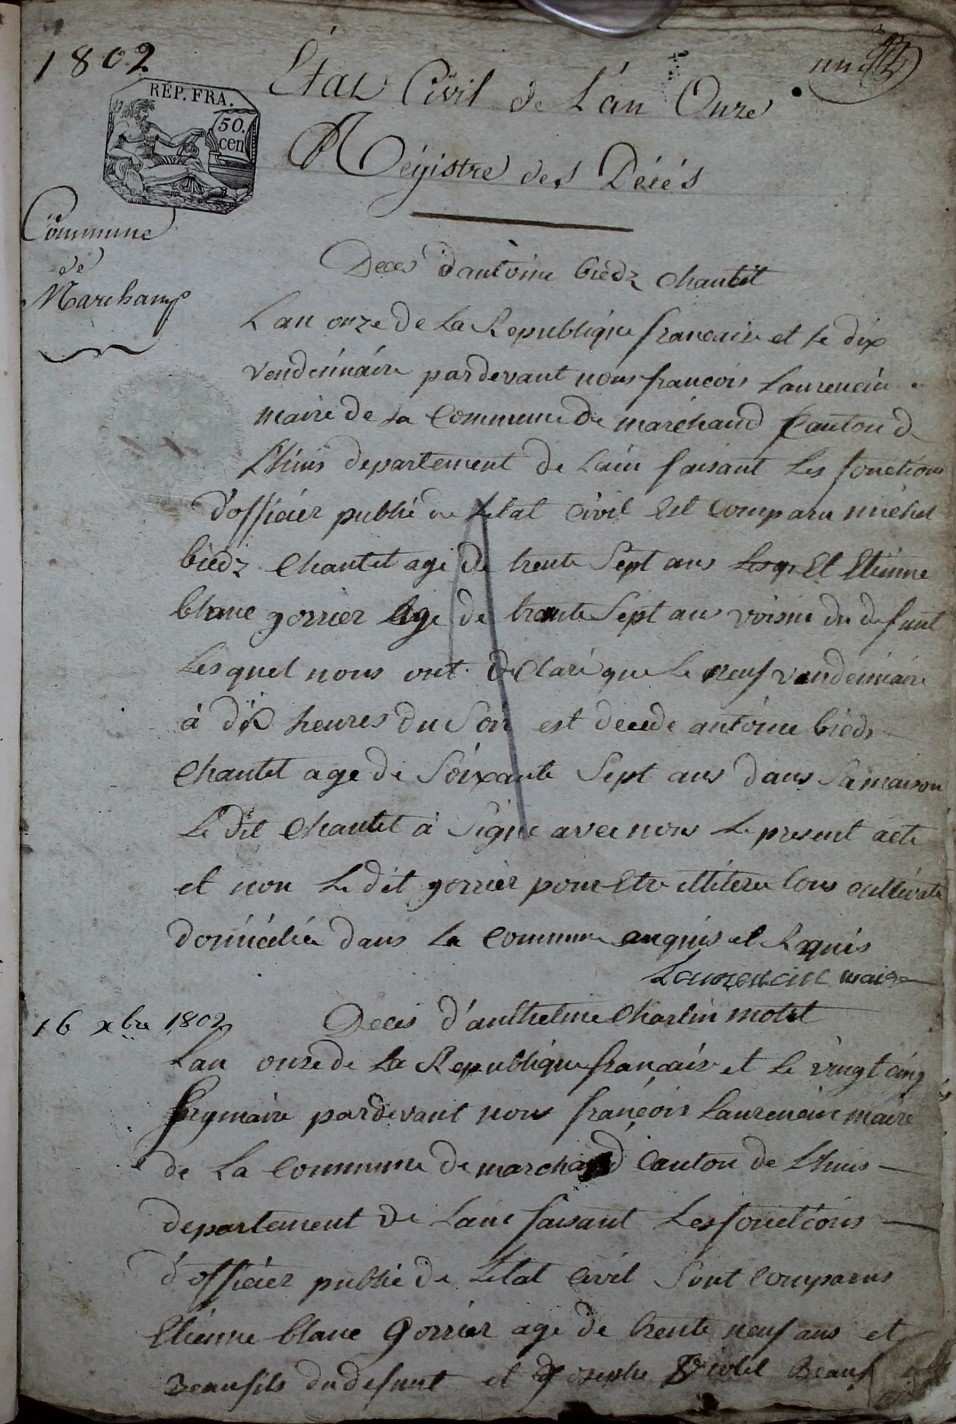 1802
Etat Civil de L'an Onze
RÉP. FRA.
50.
cen
Régistre des Décés
Commune
de
Marchamp
Deces d'antoine bièdz Chantet
L an onze de La Republique francaise et le dix
Vendémiaire pardevant nous francois Laurencin
maire de la Commune de marchand Canton de
Lhuis departement de Lain faisant Les fonctions
d'officier public de Letat Civil Est Comparu michel
bièdz Chantet agé de trente Sept ans Et Etienne
blanc gorrier Age de trente Sept ans voisin du defunt
Lesquel nous ont déClaré que Le neuf vandemiaire
à dix heures du Soir est decede antoine bieds
Chantet age de Soixante Sept ans dans Sa maison
Le dit Chantet à Signé avec nous Le present acte
et non Le dit gorrier pour Etre illiteré tous cultivate
domicilié dans La Commune enquis et Requis
Laurencin maire
16 xbre 1802
Deces d'anthelme Charlin motet
Lan onze de La Republique française et Le vingt cinq
frymaire pardevant nous françois Laurencin maire
de La Commune de marchand Canton de Lhuis
departement de Lain faisant Les fonctions
d'officier public de Letat Civil Sont Comparus
Etienne blanc Gorrier age de trente neuf ans et
Beaufils du defunt et Joseph Beauf